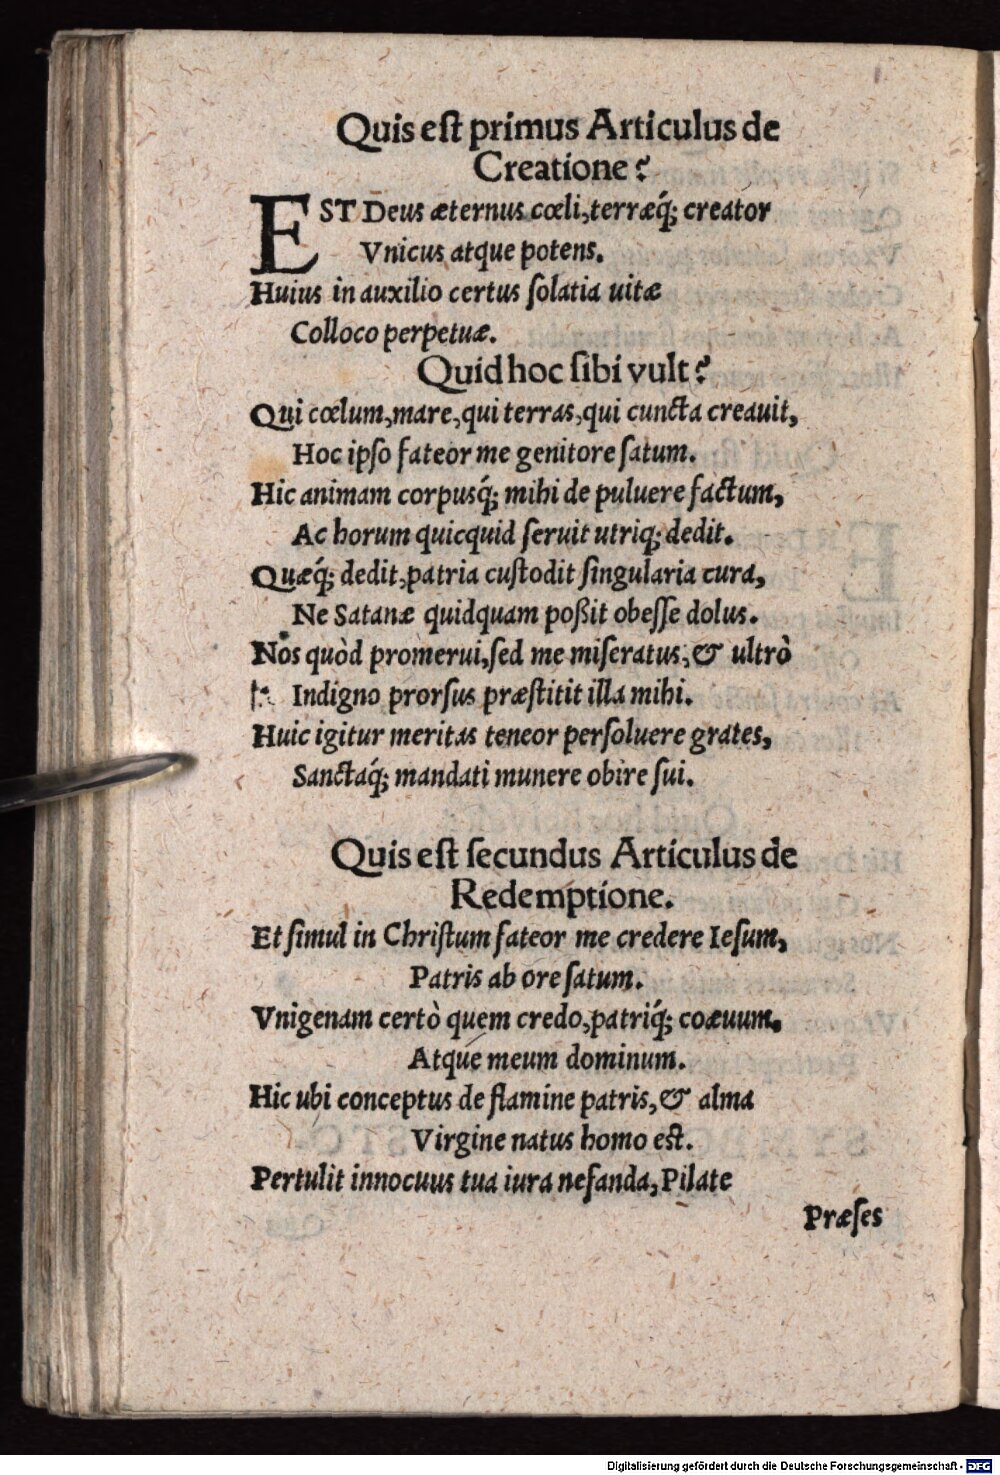 Quis est primus Articulus de
Creatione?
EST Deus æternus cœli, terræq́; creator
Vnicus atque potens.
Huius in auxilio certus solatia uitæ
Colloco perpetuæ.
Quid hoc sibi vult?
Qui cœlum, mare, qui terras, qui cuncta creauit,
Hoc ipso fateor me genitore satum.
Hic animam corpusq́; mihi de puluere factum,
Ac horum quicquid seruit utriq; dedit.
Quæq́; dedit, patria custodit singularia cura,
Ne Satanæ quidquam poßit obesse dolus.
Nos quòd promerui, sed me miseratus, & ultrò
Indigno prorsus præstitit illa mihi.
Huic igitur meritas teneor persoluere grates,
Sanctaq́; mandati munere obire sui.
Quis est secundus Articulus de
Redemptione.
Et simul in Christum fateor me credere Iesum,
Patris ab ore satum.
Vnigenam certò quem credo, patriq́; coæuum.
Atque meum dominum.
Hic ubi conceptus de flamine patris, & alma
Virgine natus homo est.
Pertulit innocuus tua iura nefanda, Pilate
Præses
Digitalisierung gefördert durch die Deutsche Forschungsgemeinschaft - DFG